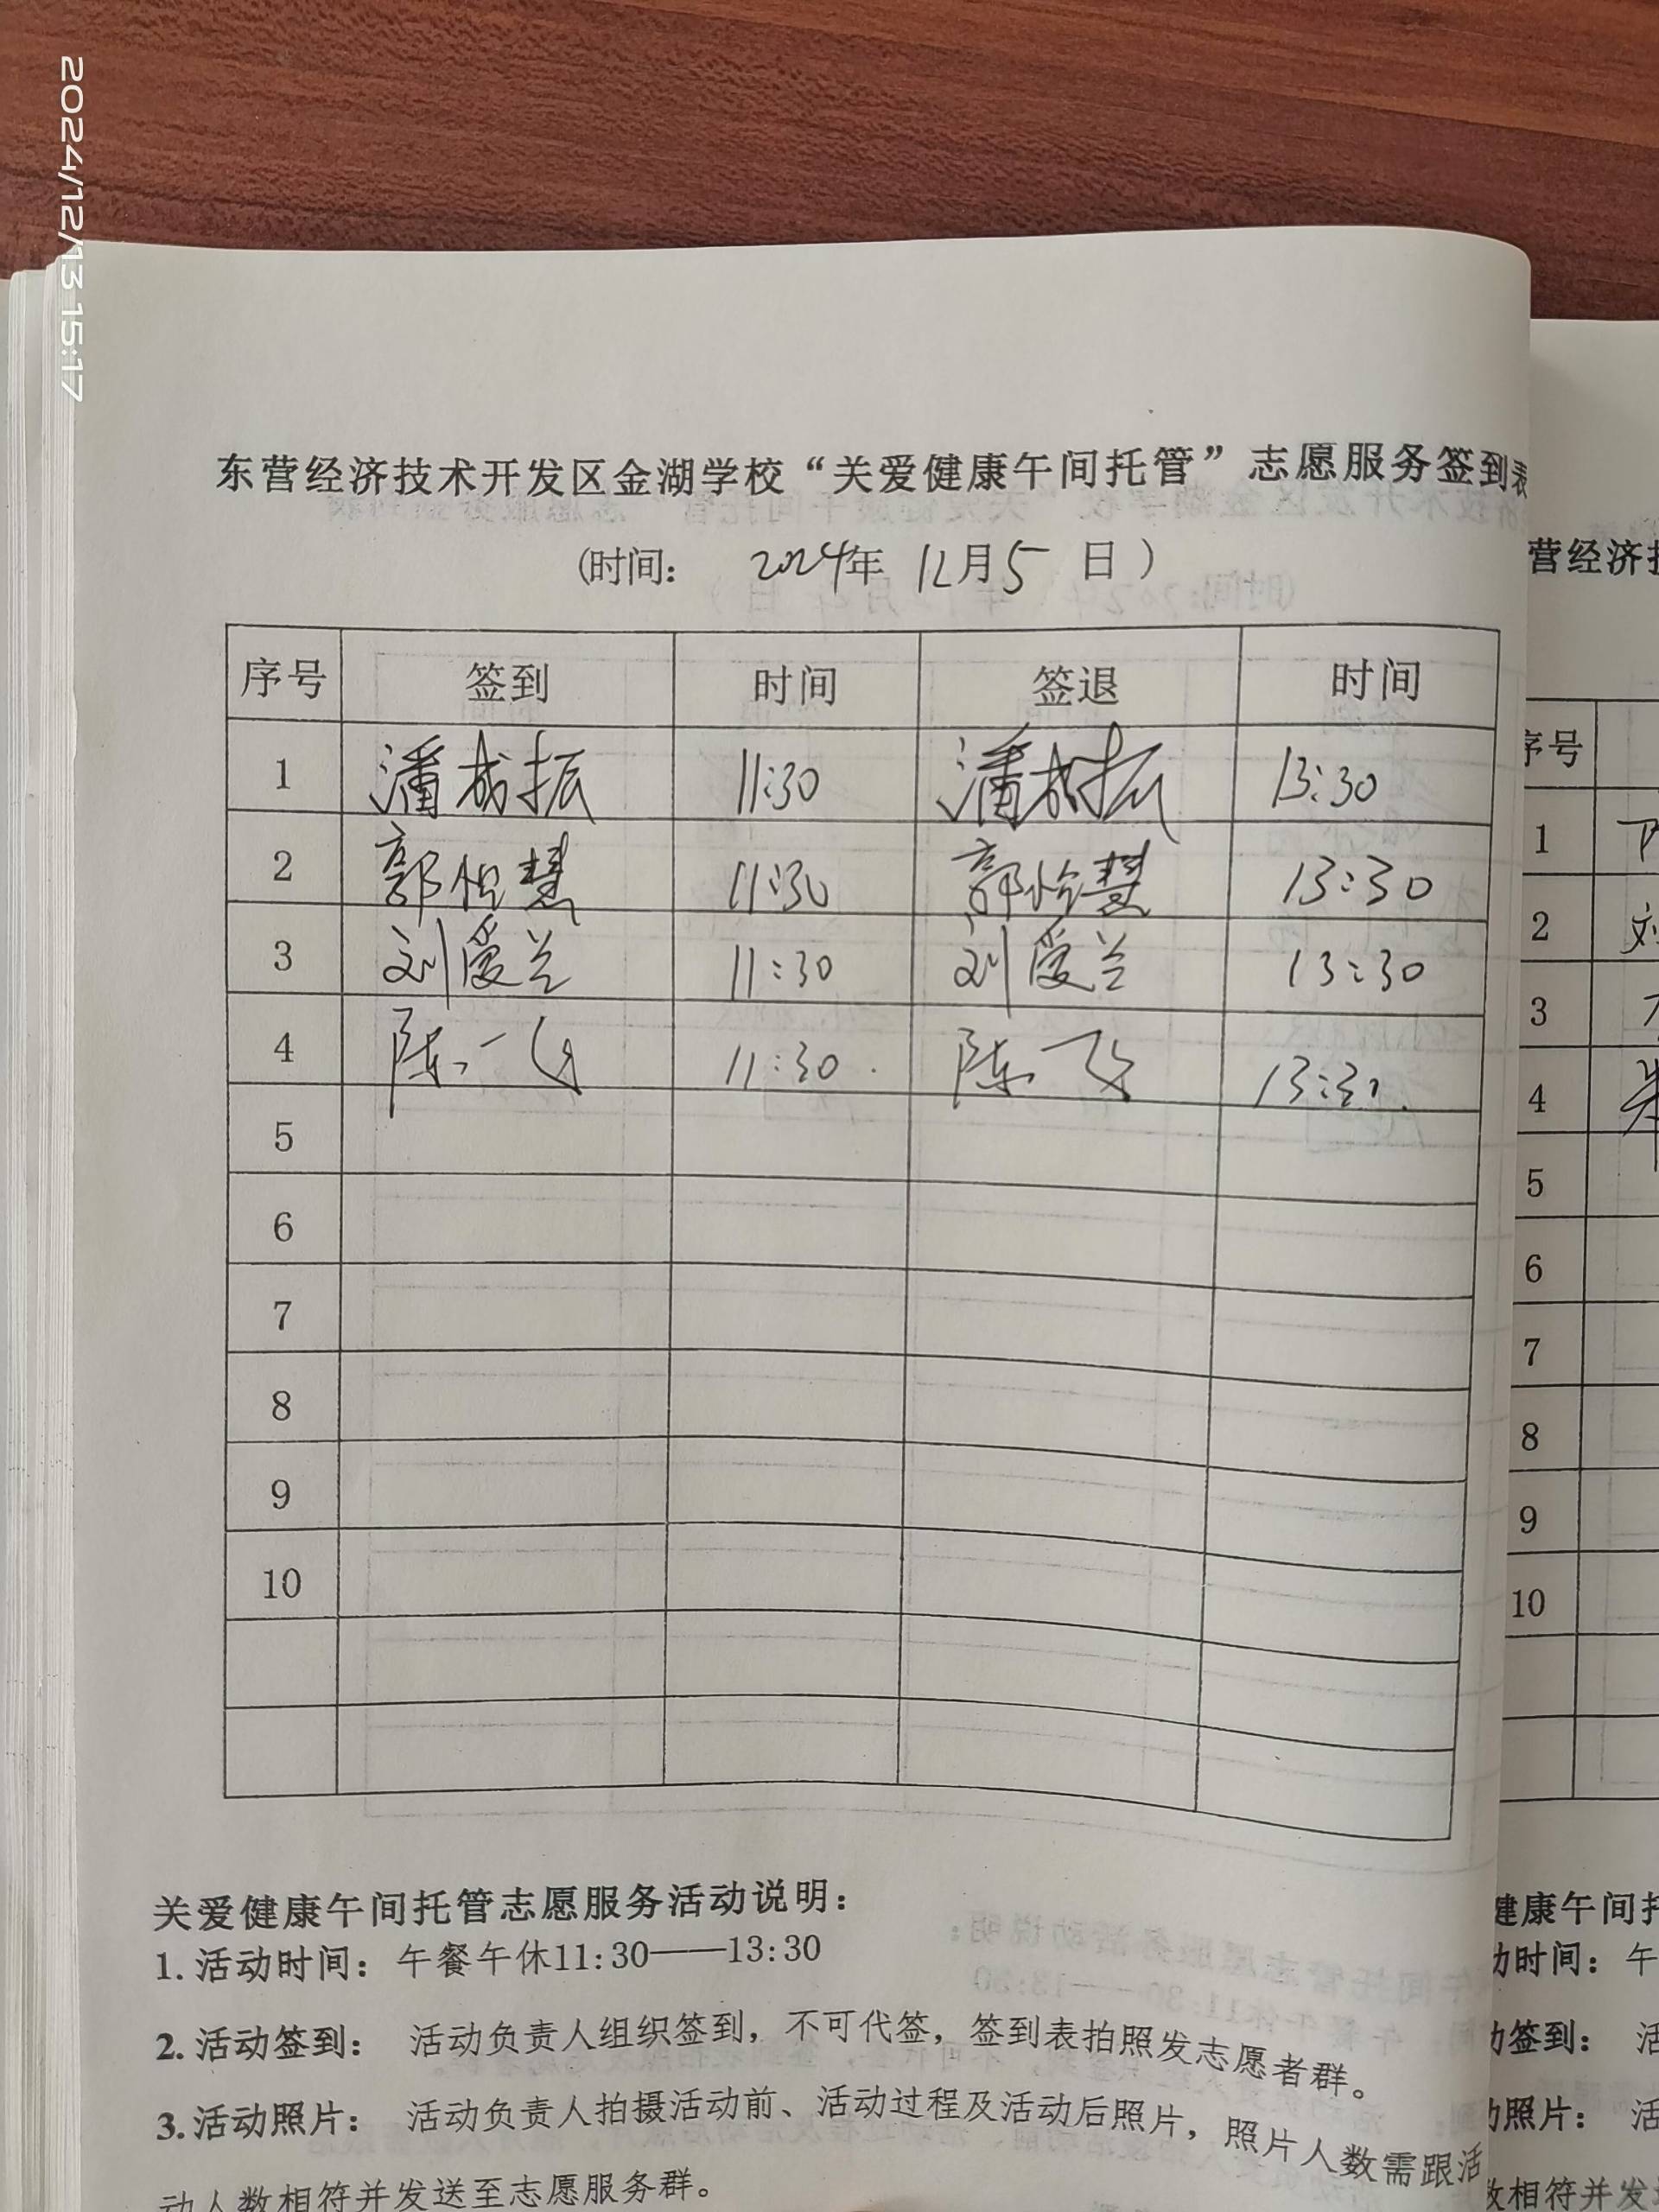 2024/12/13 15:17
东营经济技术开发区金湖学校“关爱健康午间托管”志愿服务签到表
(时间: 2024年 12月5 日)
序号 签到 时间 签退 时间
1 潘成振 11:30 潘成振 13:30
2 郭怡慧 11:30 郭怡慧 13:30
3 刘爱兰 11:30 刘爱兰 13:30
4 陈一 11:30. 陈一 13:30.
5
6
7
8
9
10
关爱健康午间托管志愿服务活动说明:
1.活动时间: 午餐午休11:30——13:30
2.活动签到: 活动负责人组织签到，不可代签，签到表拍照发志愿者群。
3.活动照片: 活动负责人拍摄活动前、活动过程及活动后照片，照片人数需跟活
动人数相符并发送至志愿服务群。
营经济技
序号
1
2 刘
3
4
5
6
7
8
9
10
健康午间托
动时间: 午
动签到: 活
动照片: 活
数相符并发